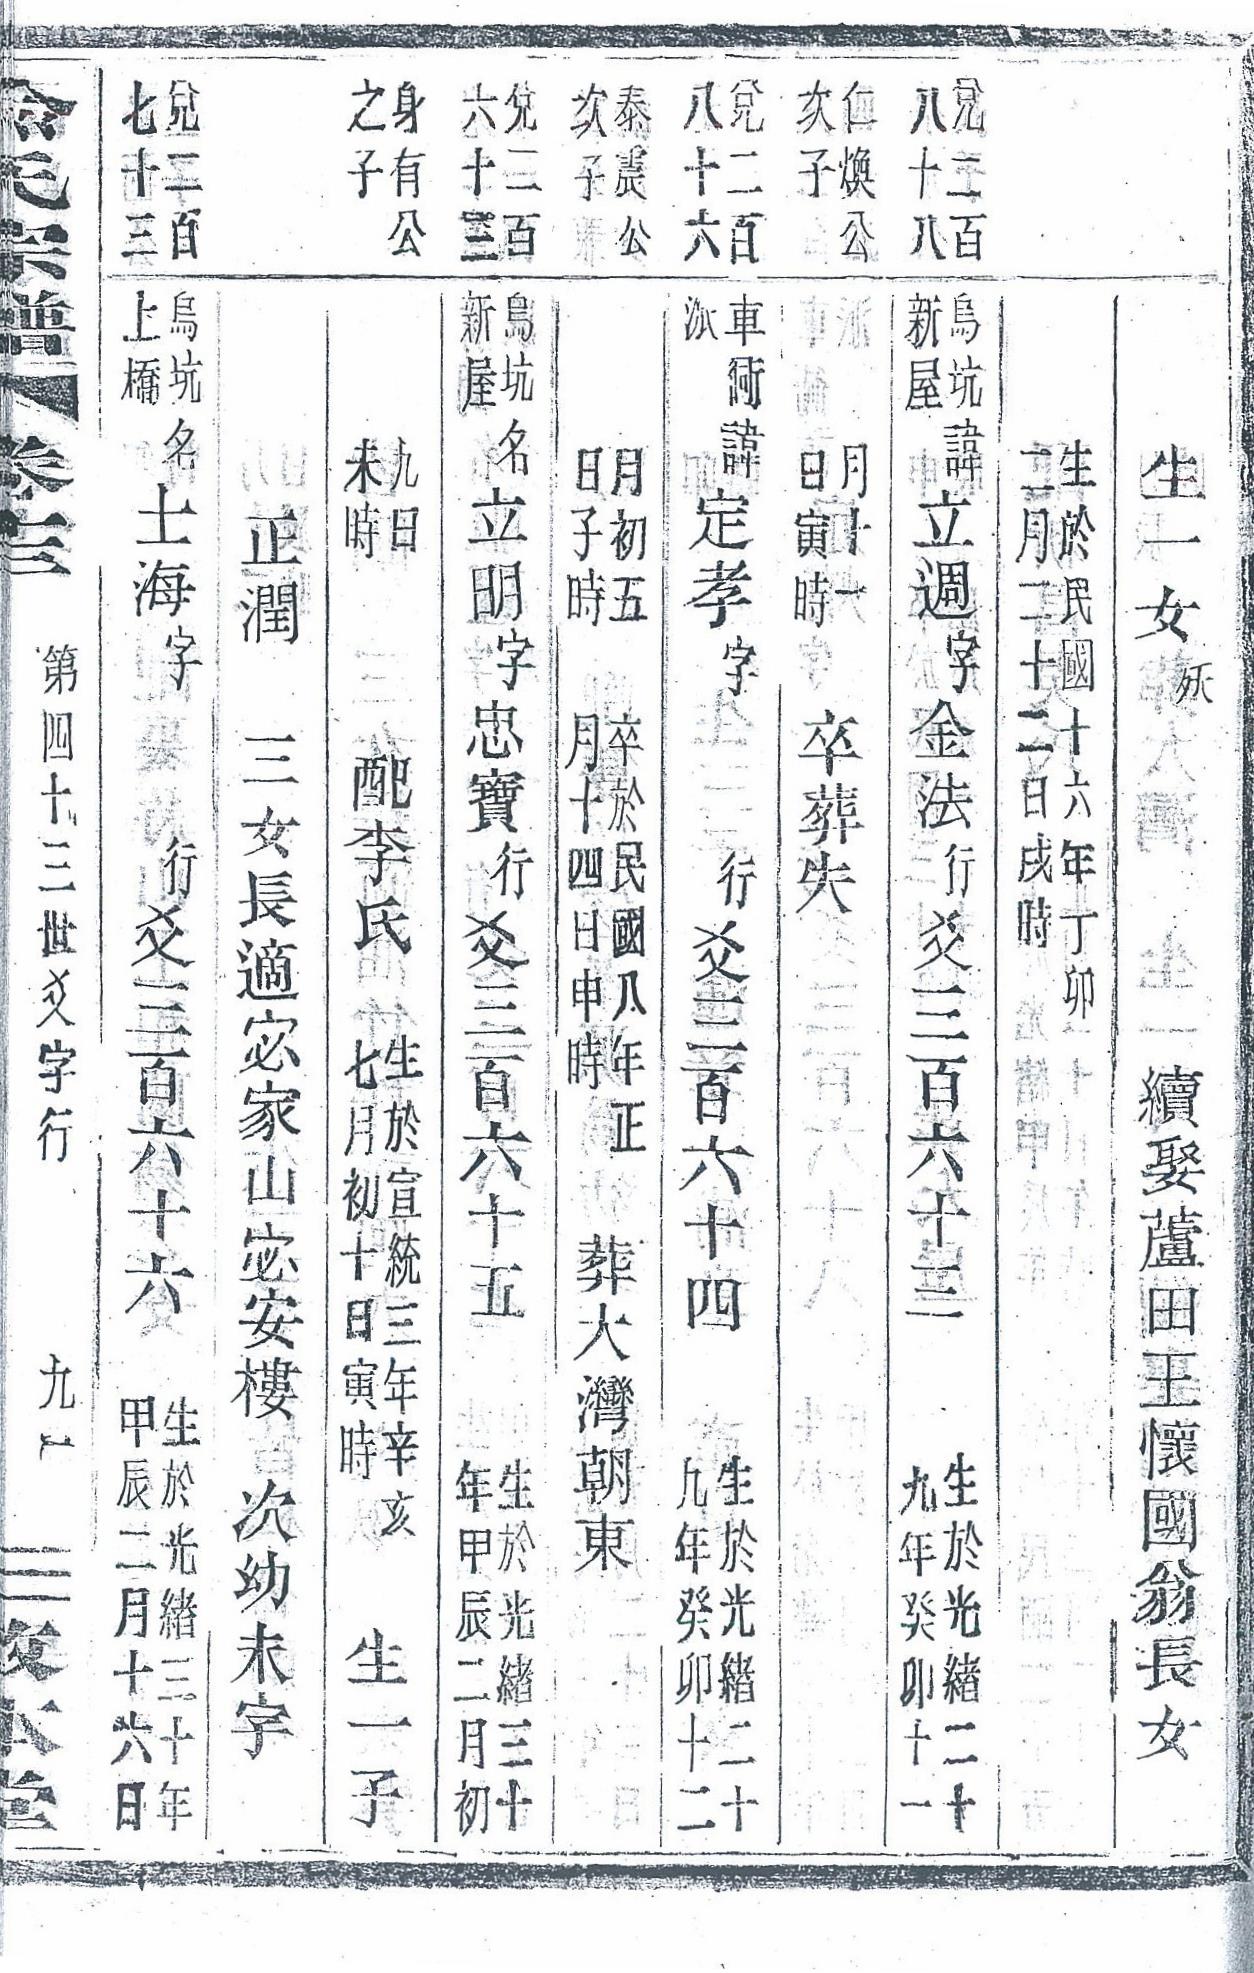 生一女殀 續娶蘆田王懷國翁長女
生於民國十六年丁卯
二月二十二日戌時
兌二百
八十八
烏坑
新屋
諱立週字金法行爻三百六十三
生於光緒二十
九年癸卯十一
仁煥公
次子
月十一
日寅時
卒葬失
兌二百
八十六
車衕
派
諱定孝字 行爻三百六十四
生於光緒二十
九年癸卯十二
泰憲公
次子
月初五
日子時
卒於民國八年正
月十四日申時
葬大灣朝東
兌二百
六十三
烏坑
新屋
名立明字忠寶行爻三百六十五
生於光緒三十
年甲辰二月初
身有公
之子
九日
未時
配李氏
生於宣統三年辛亥
七月初十日寅時
生一子
正潤 三女長適宓家山宓安樓 次幼未字
兌二百
七十三
烏坑
上橋
名士海字 行爻三百六十六
生於光緒三十年
甲辰二月十六日
氏宗譜 卷 第四十三世爻字行 九 敦本堂